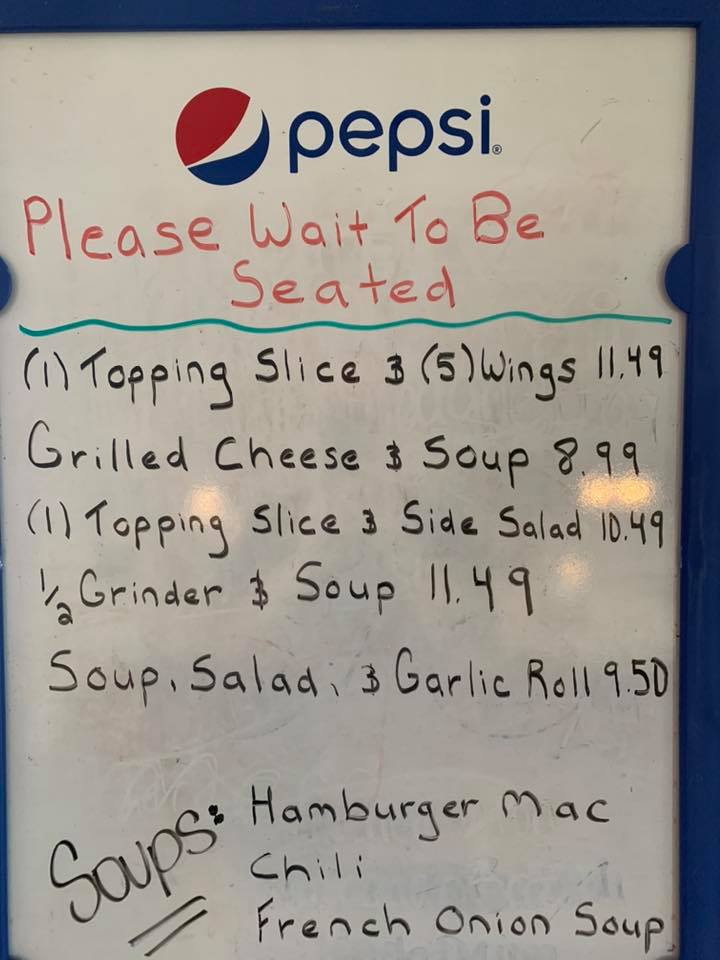 pepsi®
Please Wait To Be
Seated
(1) Topping Slice & (5) Wings 11.49
Grilled Cheese & Soup 8.99
(1) Topping Slice & Side Salad 10.49
1/2 Grinder & Soup 11.49
Soup, Salad, & Garlic Roll 9.50
Soups: Hamburger Mac
Chili
French Onion Soup